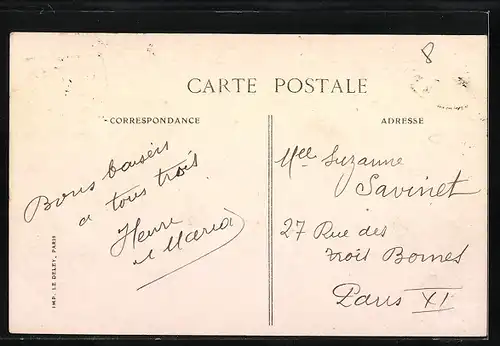 8
CARTE POSTALE
CORRESPONDANCE
ADRESSE
Bons baisers
a tous trois
Henri
et Maria
Mlle Suzanne
Savinet
27 Rue des
trois Bornes
Paris XI
IMP. LE DELEY, PARIS